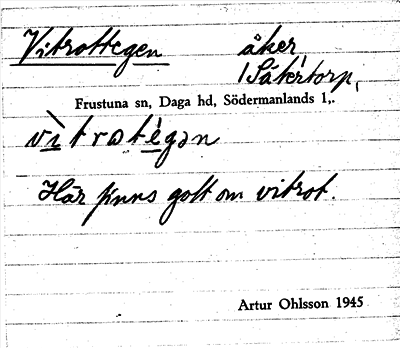 Vitrottegen åker
/Sätertorp,
Frustuna sn, Daga hd, Södermanlands l,.
vìtrotégən
Här finns gott om vitrot.
Artur Ohlsson 1945